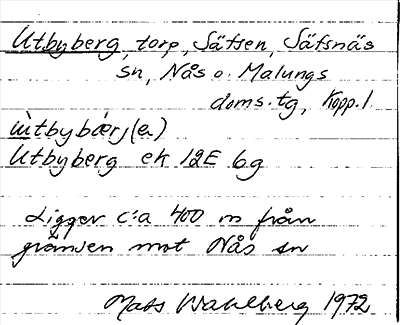 Utbyberg, torp, Säfsen, Säfsnäs
sn, Nås o. Malungs
doms. tg, Kopp. l
ùtbybærj(e)
Utbyberg ek 12E 6g
Ligger c:a 400 m från
gränsen mot Nås sn
Mats Wahlberg 1972